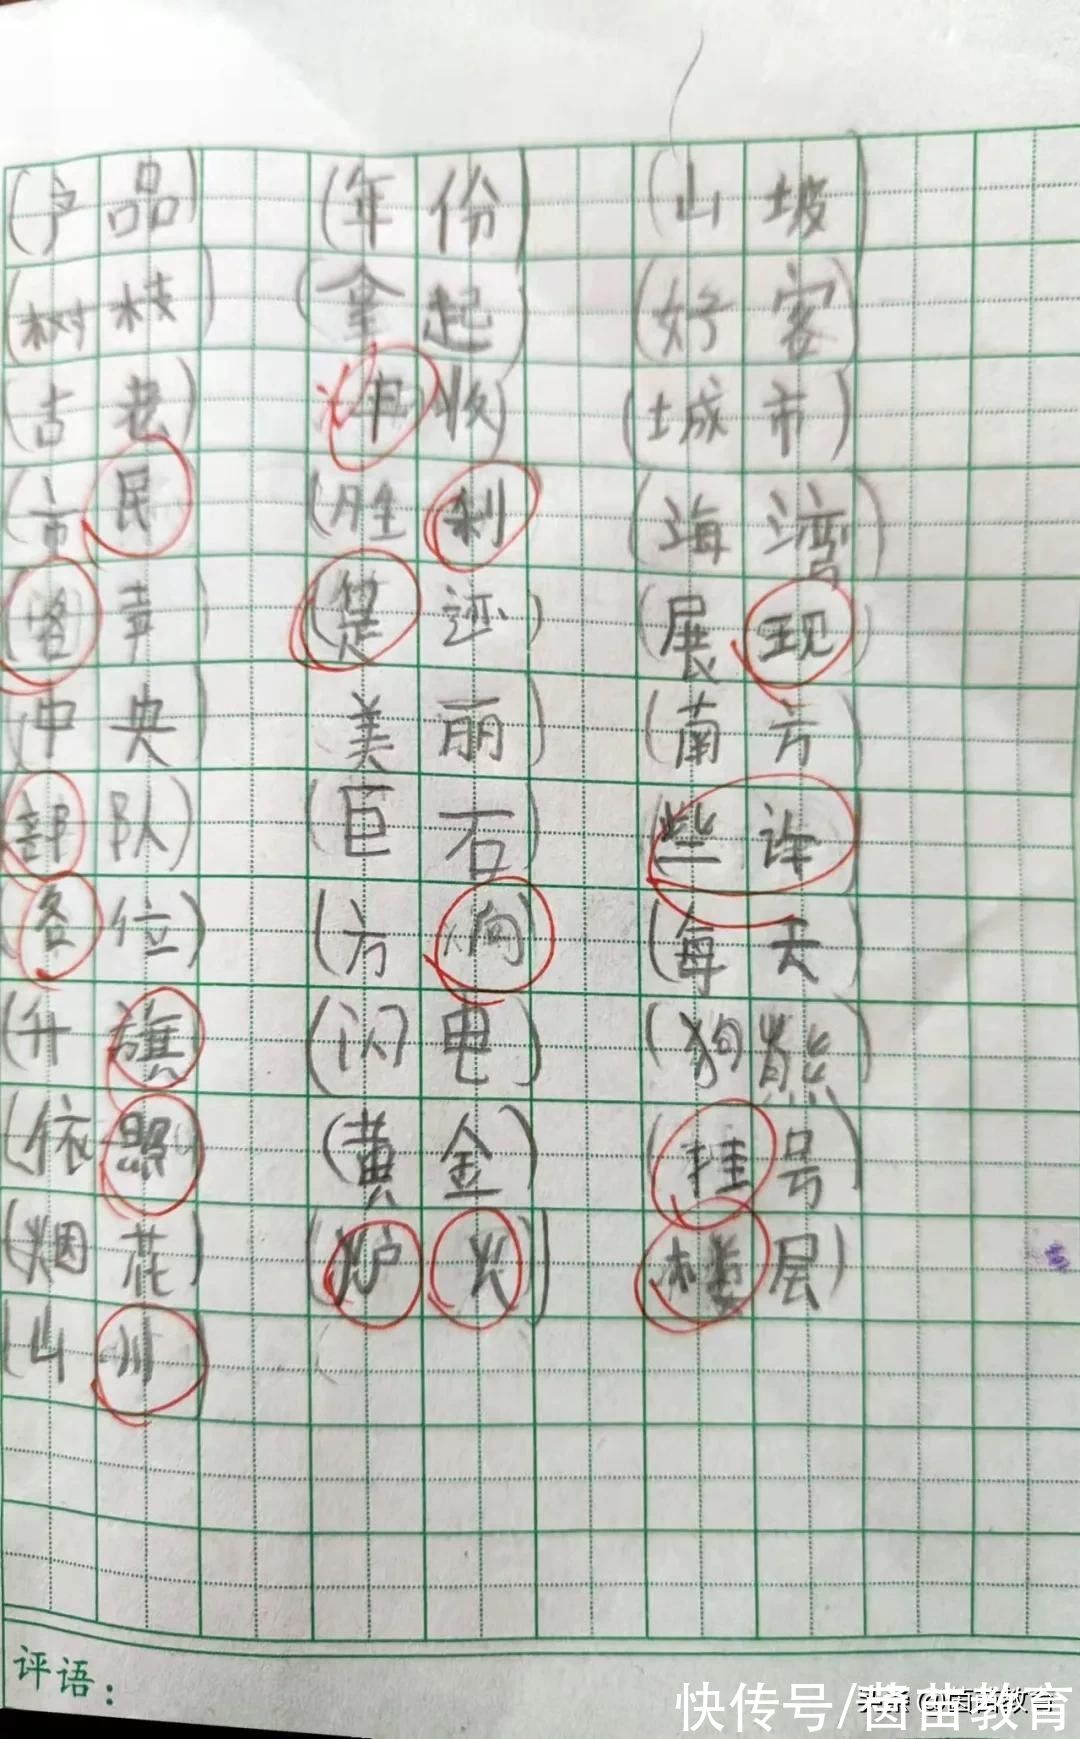 (产品) (年份) (山坡)
(树枝) (拿起) (好客)
(古老) 收) (城市)
(市民) (胜利) (海湾)
声) 迹) (展现)
(中央 美丽) (南方
部队) (巨石) 些许
(各位) (方向 (每天)
(升旗 (闪电) (狗熊)
(依照) (黄金) (挂号)
(烟花) (炉火) 楼层)
(山川)
评语：
快传号/茵苗教育
头条 @茵苗教育